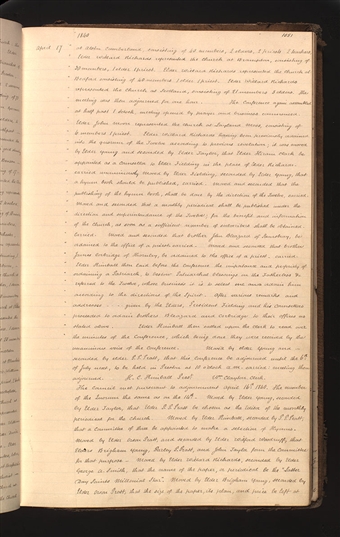 1840 1840
April 17 " at Alston Cumberland, consisting of 40 members, 2 elders, 2 priests, 2 teachers
" Elder Willard Richards represented the Church at Brampton, consisting of
" 30 members, 1 elder, 1 priest. Elder Willard Richards represented the Church at
" Bedford consisting of 40 members, 1 elder, 1 priest. Elder Willard Richards
" represented the Church at Scotland, consisting of 21 members, 3 elders. The
" meeting was then adjourned for one hour. The Conference again assembled
" at half past 1 o'clock, meeting opened by prayer and business commenced.
" Elder John Moon represented the church at Lanford Moor, consisting of
" 6 members 1 priest. Elder Willard Richards having been previously ordained
" into the quorum of the Twelve according to previous revelation, it was moved
" by Elder Young and seconded by Elder Taylor, that Elder Hiram Clark be
" appointed as a Counsellor to Elder Fielding in the place of Elder Richards.
" carried unanimously. Moved by Elder Fielding, seconded by Elder Young, that
" a hymn book should be published, carried. Moved and seconded that the
" publishing of the hymn book, shall be done by the direction of the Twelve, carried.
" Moved and seconded that a monthly periodical shall be published under the
" direction and superintendence of the Twelve, for the benefit and information
" of the Church, as soon as a sufficient number of subscribers shall be obtained.
" carried. Moved and seconded that brother John Blazard of Samlesbury, be
" ordained to the office of a priest, carried. Moved and seconded that brother
" James Corbridge of Thornley, be ordained to the office of a priest, carried.
" Elder Kimball then laid before the Conference the importance and propriety of
" ordaining a Patriarch, to bestow Patriarchal blessings on the fatherless &c
" referred to the Twelve, whose business it is to select one and ordain him
" according to the directions of the Spirit. After various remarks and
" addresses given by the Elders, President Fielding and his Counsellors
" proceeded to ordain brothers Blazard and Corbridge to their offices as
" stated above. Elder Kimball then called upon the Clerk to read over
" the minutes of the Conference, which being done they were received by the
" unanimous voice of the Conference. Moved by Elder Young and
" seconded by elder P. P. Pratt, that this Conference be adjourned until the 6th
" of July next, to be held in Preston at 10 o'clock A.M. carried: meeting then
" adjourned. H. C. Kimball Prest Wm Clayton Clerk.
" The Council met pursuant to adjournment April 16th 1840. The number
" of the Quorum the same as on the 14th. Moved by Elder Young, seconded
" by Elder Taylor, that Elder P. P. Pratt be chosen as the Editor of the monthly
" periodical for the church. Moved by Elder Kimball, seconded by P. P. Pratt,
" that a Committee of three be appointed to make a selection of Hymns.
" Moved by Elder Orson Pratt, and seconded by Elder Wilford Woodruff, that
" Elders Brigham Young, Parley P. Pratt, and John Taylor form the Committee
" for that purpose. Moved by Elder Willard Richards, seconded by Elder
" George A. Smith, that the name of the paper, or periodical be the "Latter
" Day Saints Millennial Star". Moved by Elder Brigham Young, seconded by
" Elder Orson Pratt, that the size of the paper, its plan, and price be left at